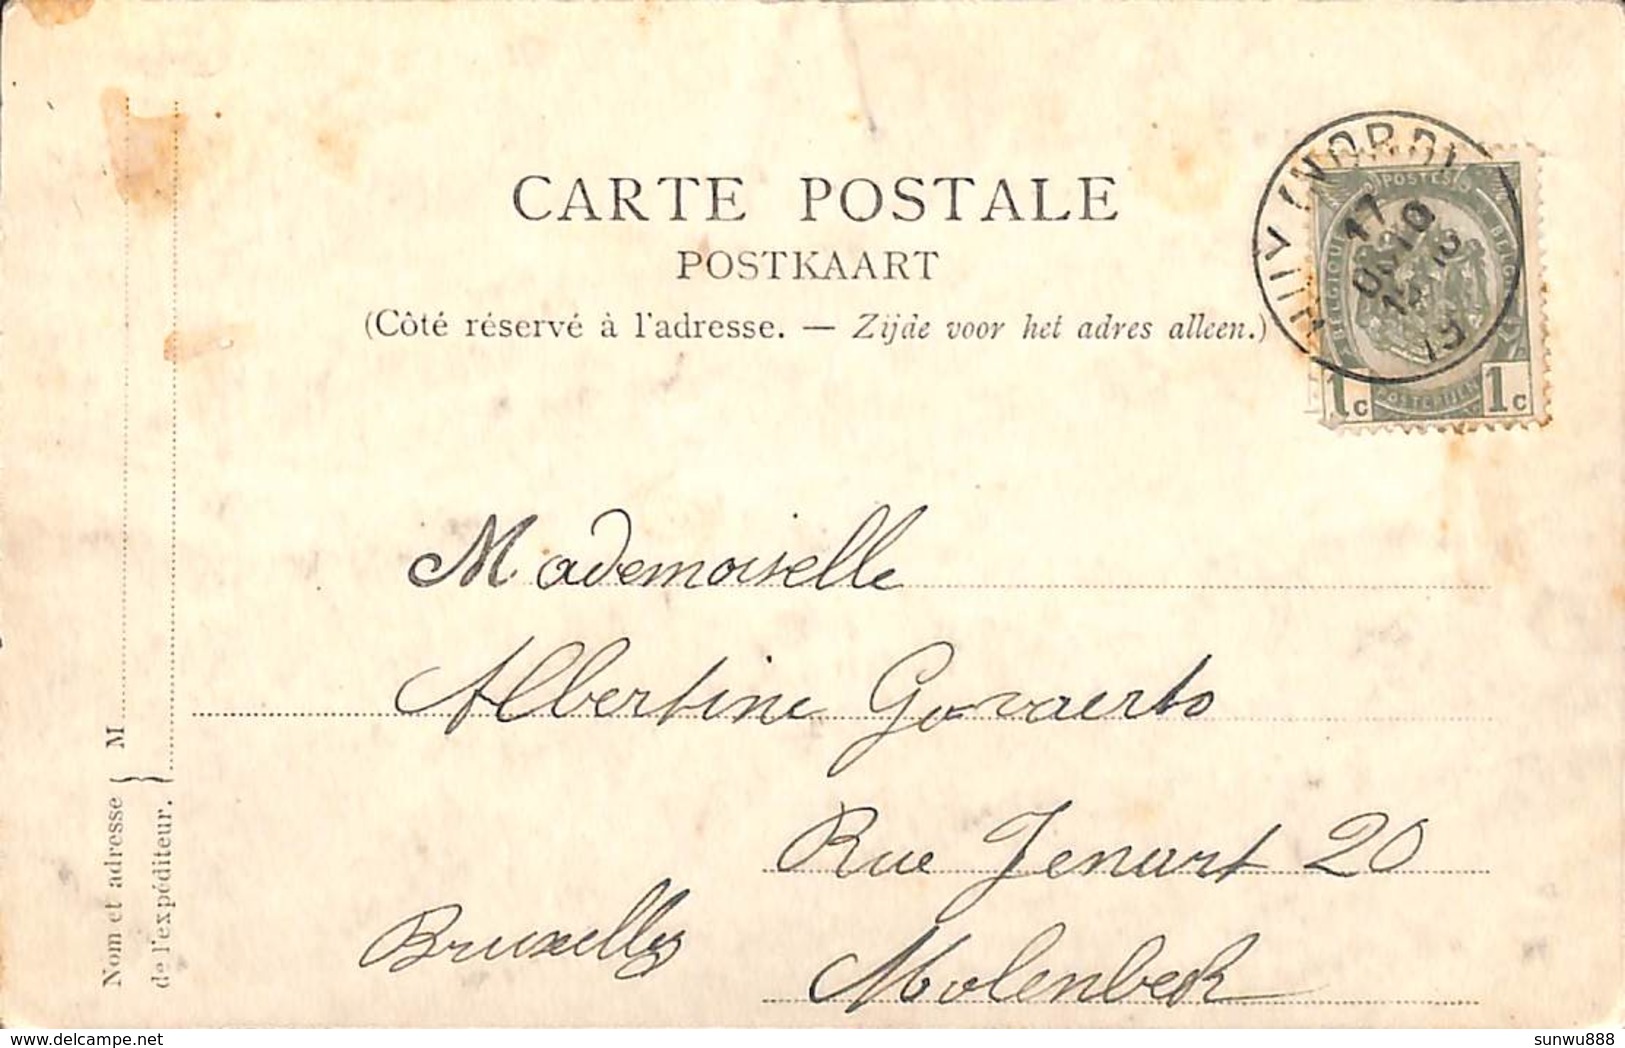 CARTE POSTALE
POSTKAART
(Côté réservé à l'adresse. — Zijde voor het adres alleen.)
HUY (NORD)
17
10
19
POSTES
BELGIQUE
BELGIË
1c 1c
POSTERIJEN
Mademoiselle
Albertine Govaerts
Rue Jenart 20
Bruxelles
Molenbeek
Nom et adresse } M
de l'expéditeur.
delcampe.net
sunwu888